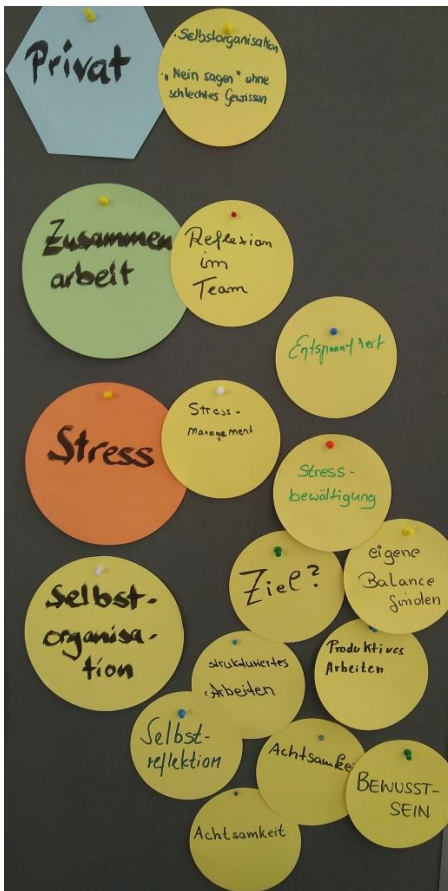 Privat
· Selbstorganisation
· "Nein sagen" ohne
schlechtes Gewissen
Zusammen
arbeit
Reflexion
im
Team
Entspanntheit
Stress
Stress-
management
Stress-
bewältigung
Ziel?
eigene
Balance
finden
Selbst-
organisa-
tion
strukturiertes
Arbeiten
Produktives
Arbeiten
Selbst-
reflektion
Achtsamkeit
BEWUSST-
SEIN
Achtsamkeit